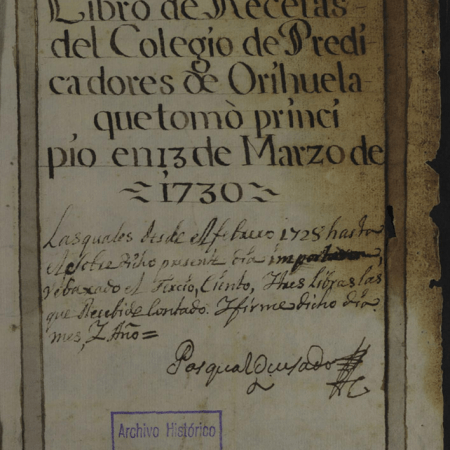 Libro de Recetas
del Colegio de Predi
cadores de Orihuela
que tomò princi
pio en 13 de Marzo de
1730
Las quales desde febrero 1728 hasta
dicho presente dia
rebaxado el Tercio, Ciento, y tres libras las
que Recibi de Contado. Y firme dicho dia
mes, Y Año=
Pasqual Quesado
Archivo Histórico